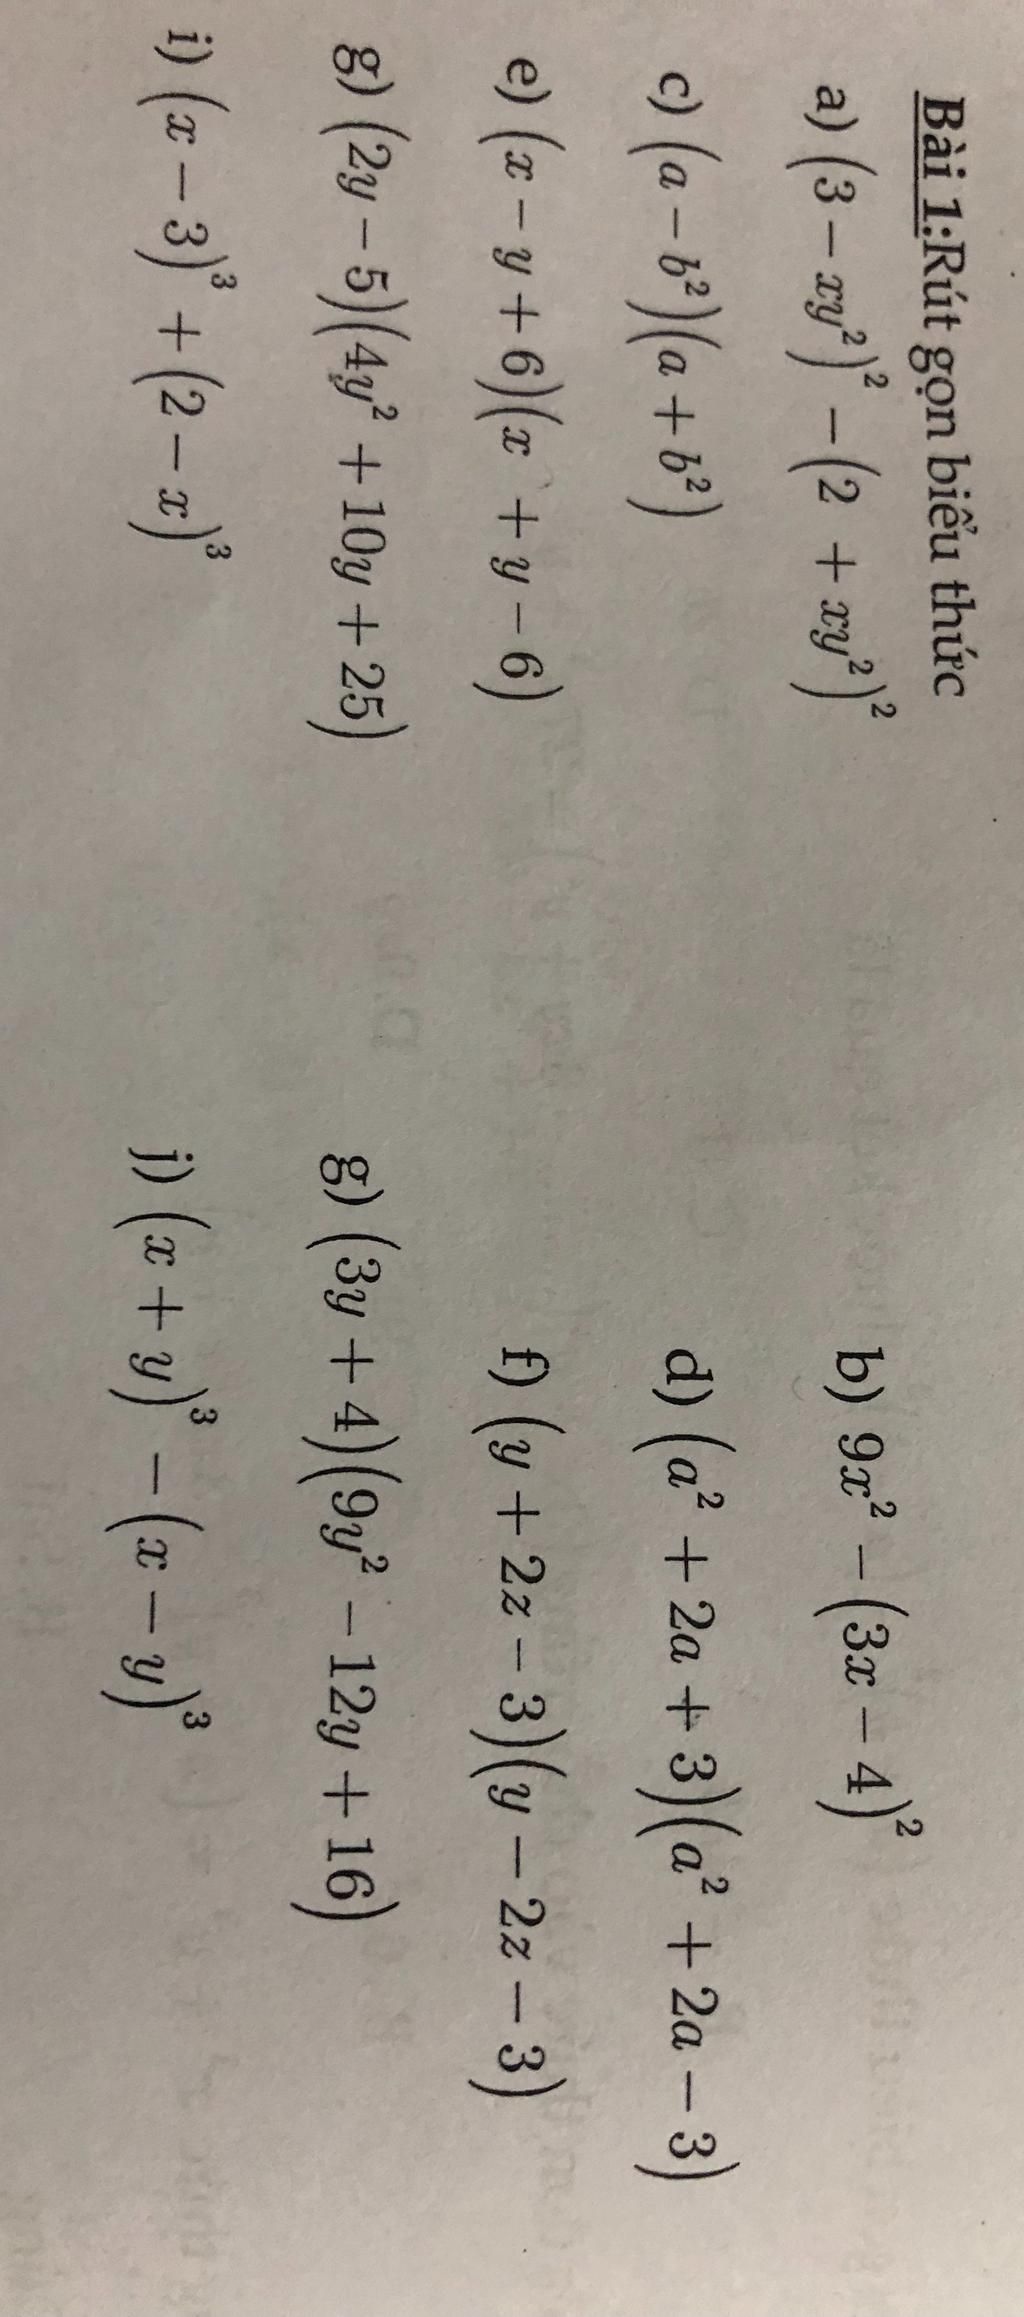 Bài 1:Rút gọn biểu thức
a) (3 − xy²)² − (2 + xy²)² b) 9x² − (3x − 4)²
c) (a − b²)(a + b²) d) (a² + 2a + 3)(a² + 2a − 3)
e) (x − y + 6)(x + y − 6) f) (y + 2z − 3)(y − 2z − 3)
g) (2y − 5)(4y² + 10y + 25) g) (3y + 4)(9y² − 12y + 16)
i) (x − 3)³ + (2 − x)³ j) (x + y)³ − (x − y)³